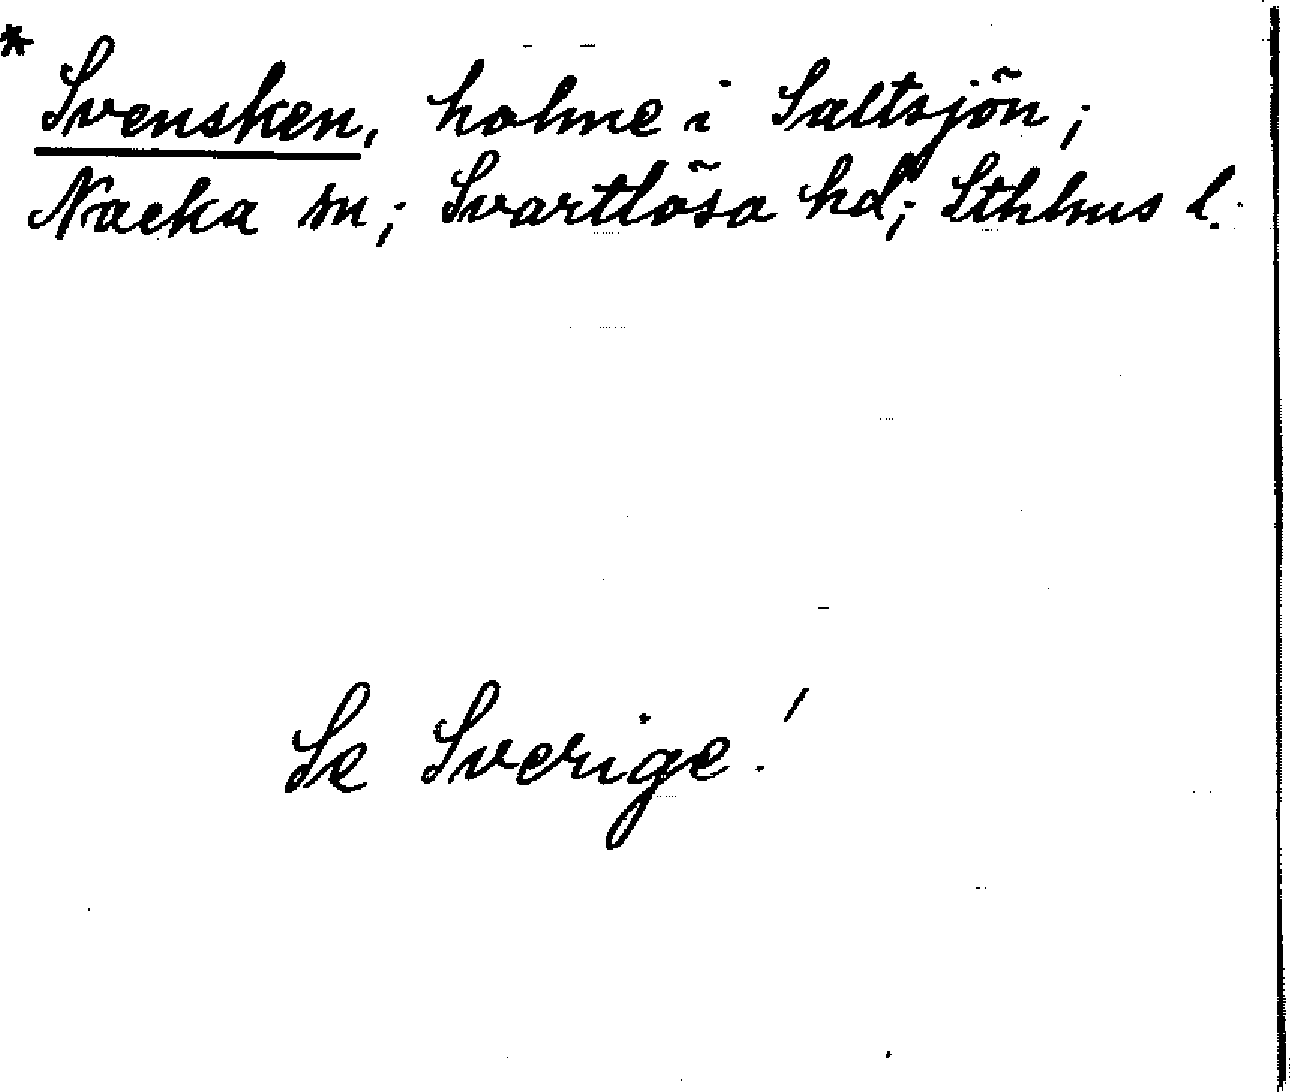 * Svensken, holme i Saltsjön;
Nacka sn; Svartlösa hd; Sthlms l.
Se Sverige!